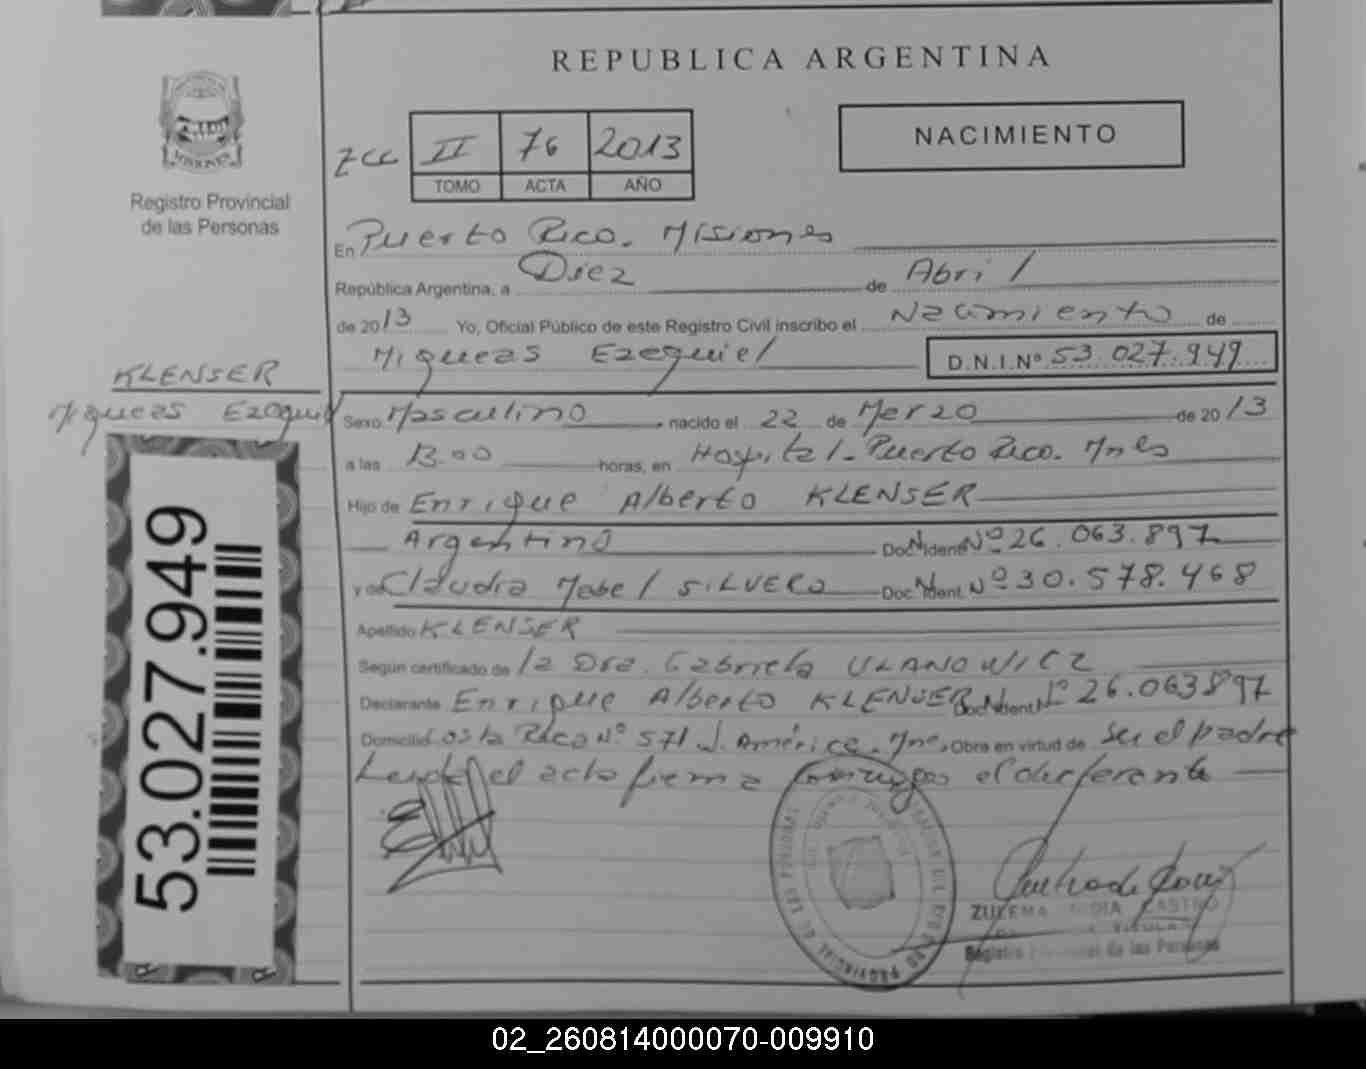 REPUBLICA ARGENTINA
NACIMIENTO
II 76 2013
TOMO ACTA AÑO
MISIONES
Registro Provincial
de las Personas
En Puerto Rico. Misiones
República Argentina, a Diez de Abril
de 2013 Yo, Oficial Público de este Registro Civil inscribo el Nacimiento de
Miqueas Ezequiel D.N.I.Nº 53.027.949
KLENSER
Miqueas Ezequiel
Sexo Masculino nacido el 22 de Marzo de 2013
a las 13.00 horas, en Hospital-Puerto Rico. Mnes
Hijo de Enrique Alberto KLENSER
Argentino Doc. Ident. Nº 26.063.897
y de Claudia Mabel SILVERO Doc. Ident. Nº 30.578.468
Apellido KLENSER
Según certificado de la Dra. Gabriela ULANOWICZ
Declarante Enrique Alberto KLENSER Doc. Ident. Nº 26.063897
Domicilio Costa Rica Nº 571 J. América. Mnes. Obra en virtud de ser el padre
Leida el acta firma conmigo el declarante
53.027.949
ZULEMA CASTRO
TITULAR
Registro Provincial de las Personas
02_260814000070-009910